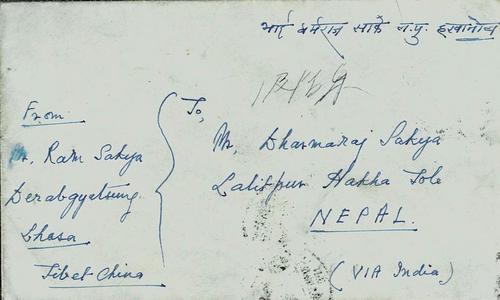 भाई धर्मराज साक्षे य.पु. हखानोष
From
Mr. Ram Sakya
Derabgyatsung
Lhasa
Tibet China
To,
Mr. Dharmaraj Sakya
Lalitpur Hakha Tole
NEPAL.
(VIA India)